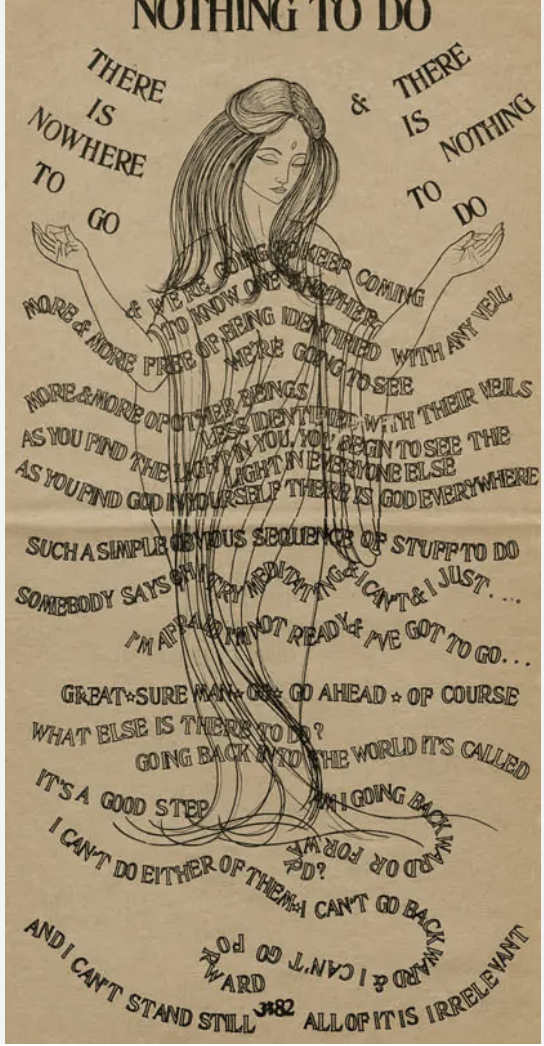 NOTHING TO DO
THERE
IS
NOWHERE
TO
GO
& THERE
IS
NOTHING
TO
DO
& WE'RE GOING TO KEEP COMING
TO KNOW ONE ANOTHER
MORE & MORE FREE OF BEING IDENTIFIED WITH ANY VEIL
WE'RE GOING TO SEE
MORE & MORE OF OTHER BEINGS
LESS IDENTIFIED WITH THEIR VEILS
AS YOU FIND THE LIGHT IN YOU, YOU BEGIN TO SEE THE
LIGHT IN EVERYONE ELSE
AS YOU FIND GOD IN YOURSELF THERE IS GOD EVERYWHERE
SUCH A SIMPLE OBVIOUS SEQUENCE OF STUFF TO DO
SOMEBODY SAYS OH I TRY MEDITATING & I CAN'T & I JUST....
I'M AFRAID I'M NOT READY & I'VE GOT TO GO...
GREAT★SURE MAN★GO★GO AHEAD★OF COURSE
WHAT ELSE IS THERE TO DO?
GOING BACK INTO THE WORLD IT'S CALLED
IT'S A GOOD STEP
AM I GOING BACKWARD OR FORWARD?
I CAN'T DO EITHER OF THEM★I CAN'T GO BACKWARD & I CAN'T GO FORWARD
AND I CAN'T STAND STILL
ALL OF IT IS IRRELEVANT